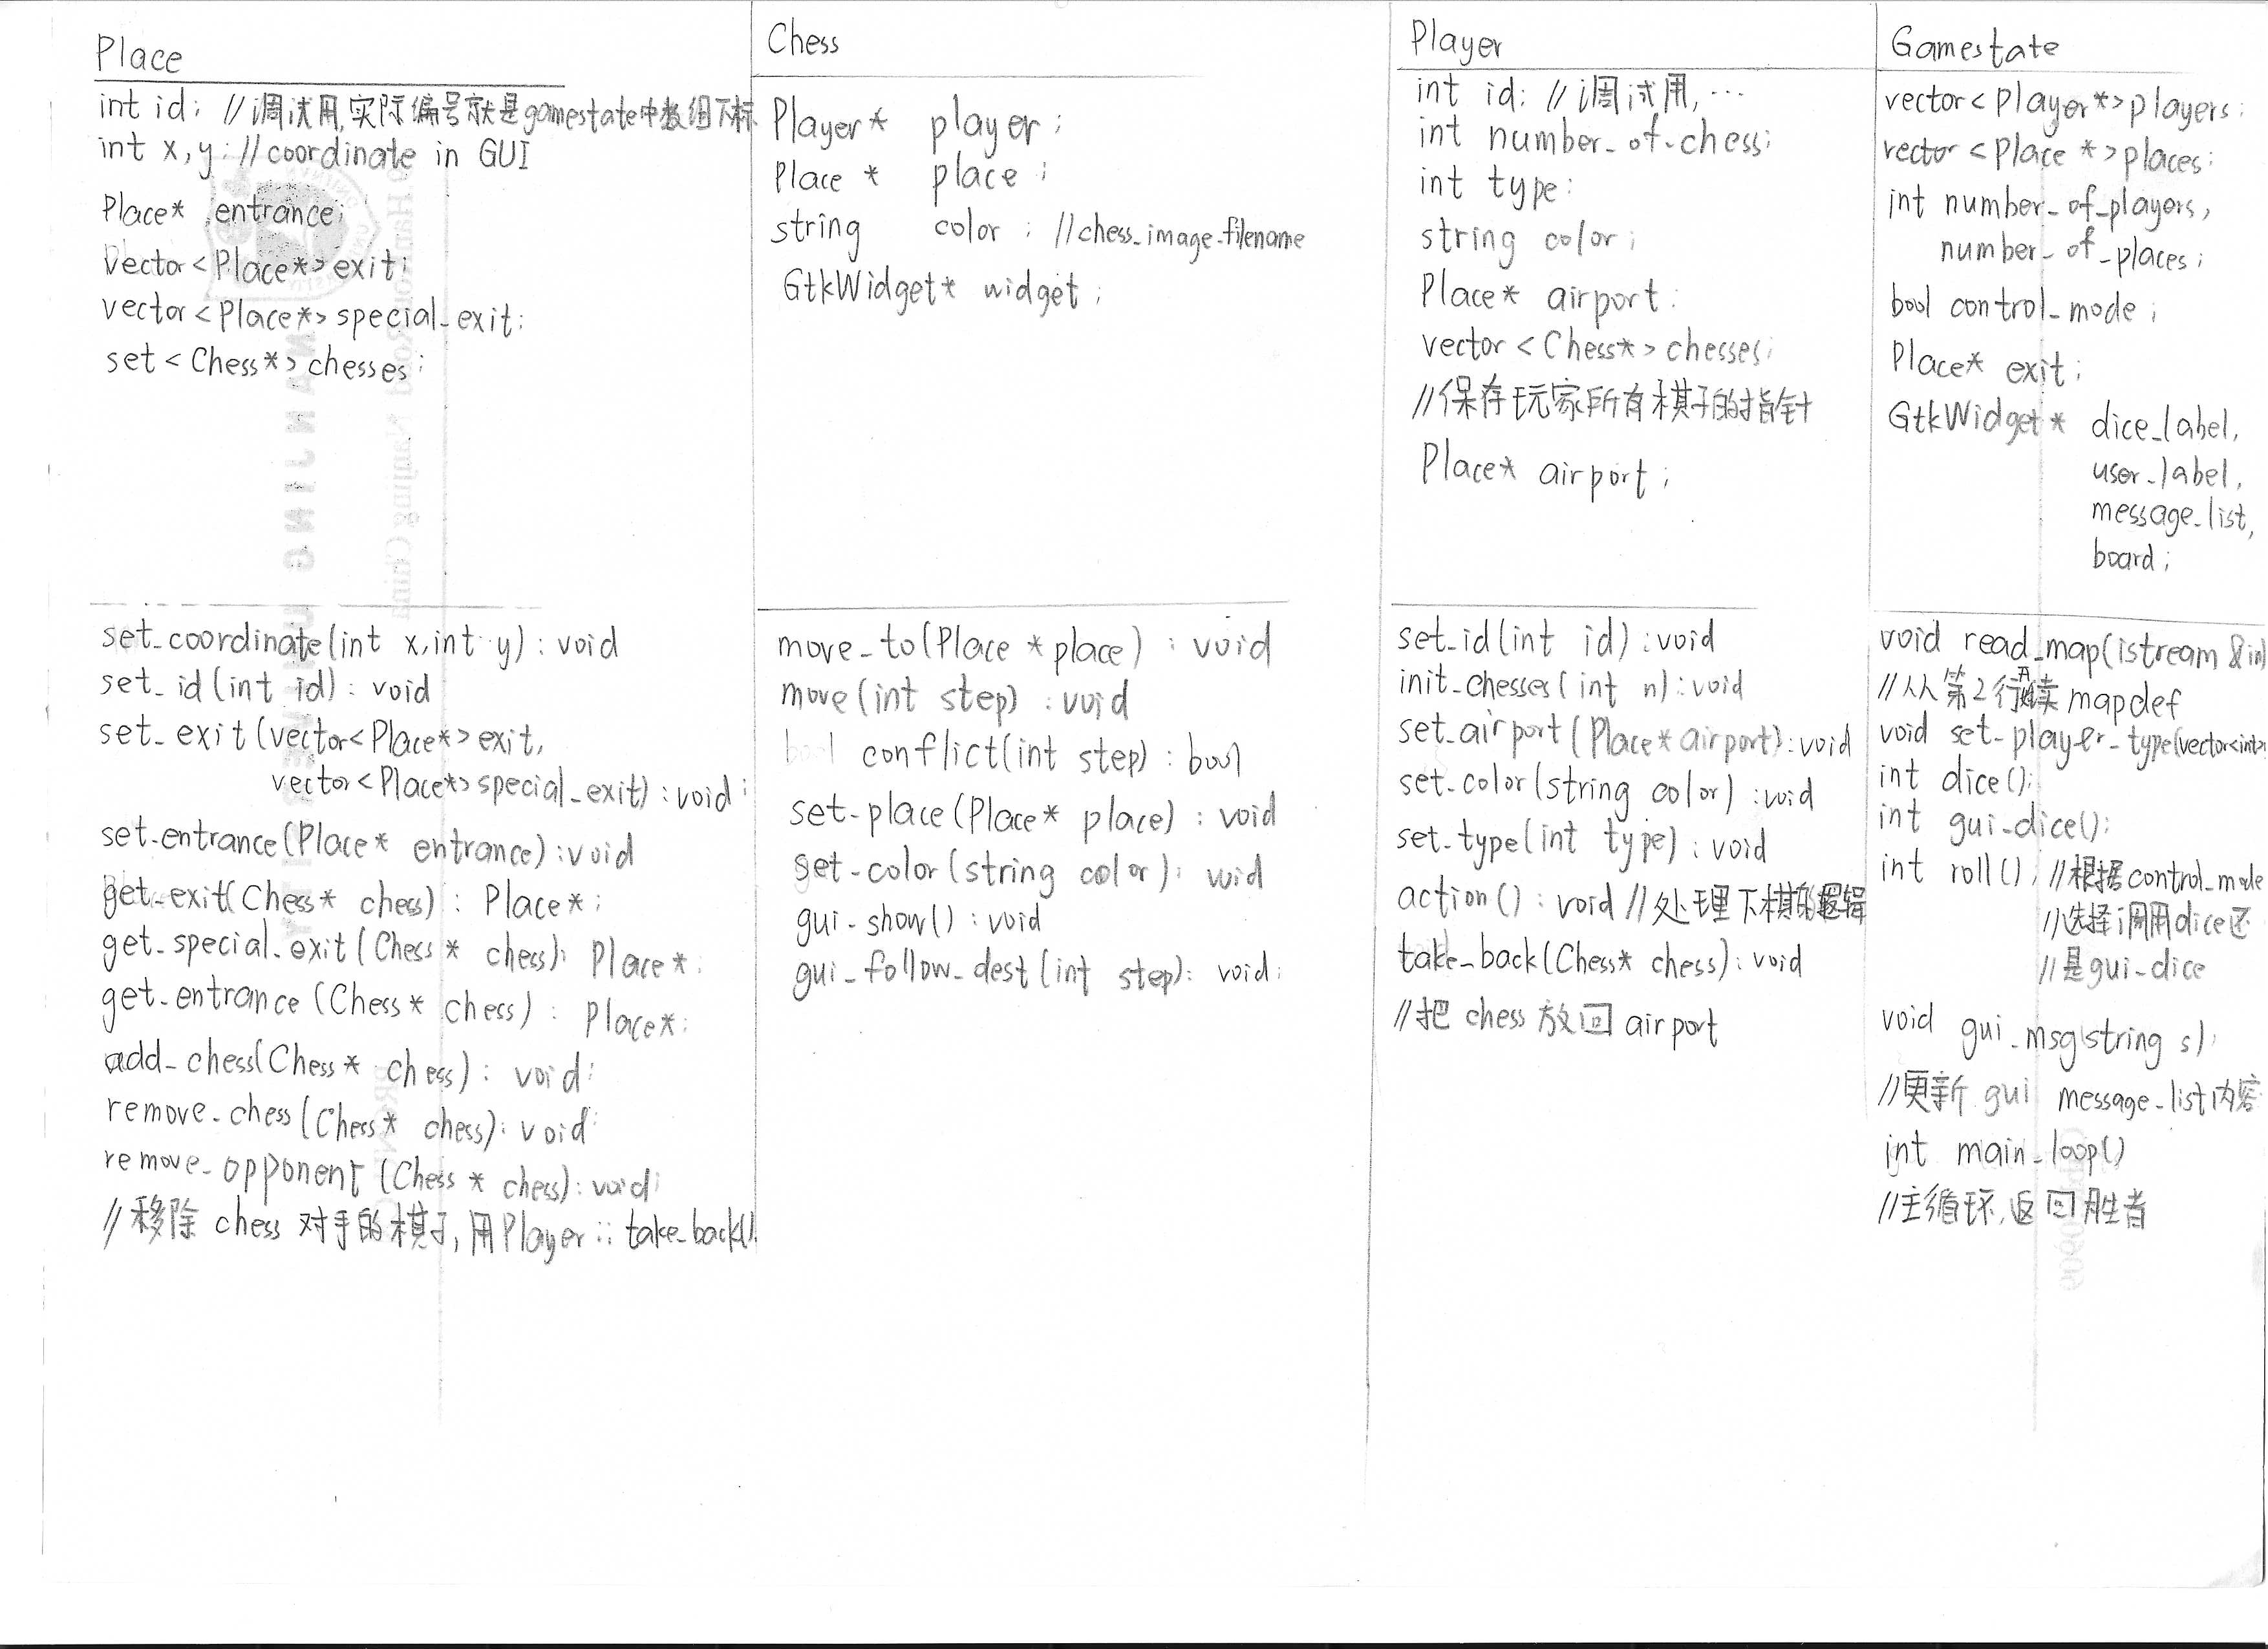 Place
int id; //调试用,实际编号就是gamestate中数组下标
int x,y; //coordinate in GUI
Place* entrance;
vector<Place*> exit;
vector<Place*> special_exit;
set<Chess*> chesses;
set_coordinate(int x,int y): void
set_id(int id): void
set_exit(vector<Place*> exit,
vector<Place*> special_exit): void;
set_entrance(Place* entrance): void
get_exit(Chess* chess): Place*;
get_special_exit(Chess* chess): Place*;
get_entrance(Chess* chess): Place*;
add_chess(Chess* chess): void;
remove_chess(Chess* chess): void;
remove_opponent(Chess* chess): void;
//移除 chess 对手的棋子,用Player::take_back().
Chess
Player* player;
Place* place;
string color; //chess_image_filename
GtkWidget* widget;
move_to(Place *place): void
move(int step): void
bool conflict(int step): bool
set_place(Place* place): void
set_color(string color): void
gui_show(): void
gui_follow_dest(int step): void;
Player
int id; //调试用,…
int number_of_chess;
int type;
string color;
Place* airport;
vector<Chess*> chesses;
//保存玩家所有棋子的指针
Place* airport;
set_id(int id): void
init_chesses(int n): void
set_airport(Place* airport): void
set_color(string color): void
set_type(int type): void
action(): void //处理下棋的逻辑
take_back(Chess* chess): void
//把 chess 放回 airport
Gamestate
vector<Player*> players;
vector<Place*> places;
int number_of_players,
number_of_places;
bool control_mode;
Place* exit;
GtkWidget* dice_label,
user_label,
message_list,
board;
void read_map(istream &in)
//从第2行开始读 mapdef
void set_player_type(vector<int>
int dice();
int gui_dice();
int roll(); //根据control_mode
//选择调用dice还
//是gui_dice
void gui_msg(string s);
//更新 gui message_list内容
int main_loop()
//主循环,返回胜者